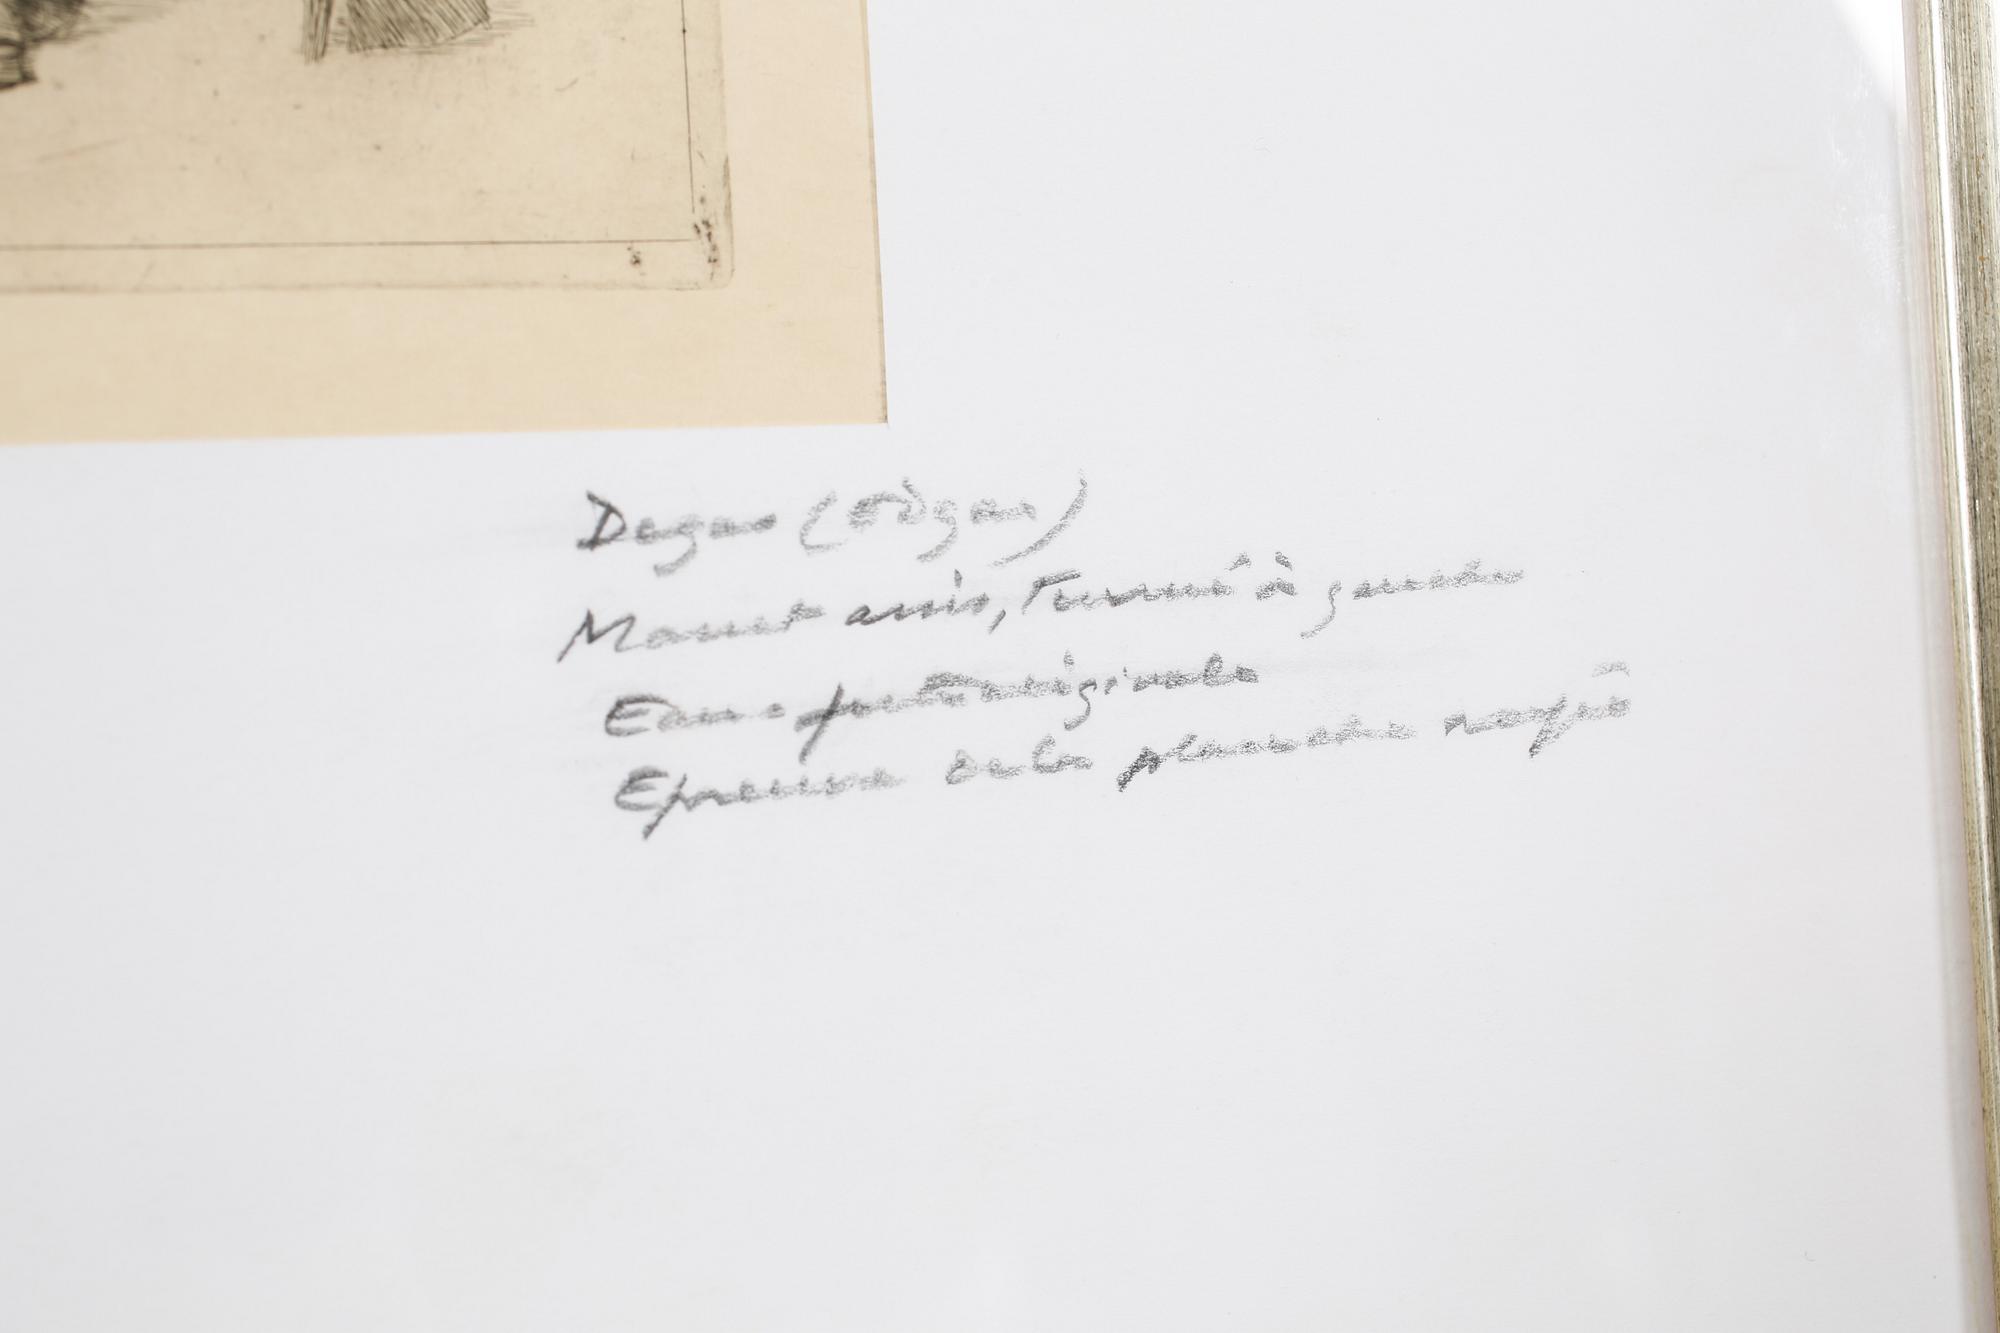 Degas (Edgar)
Manet assis, tourné à gauche
Eau-forte originale
Epreuve de la planche rayée